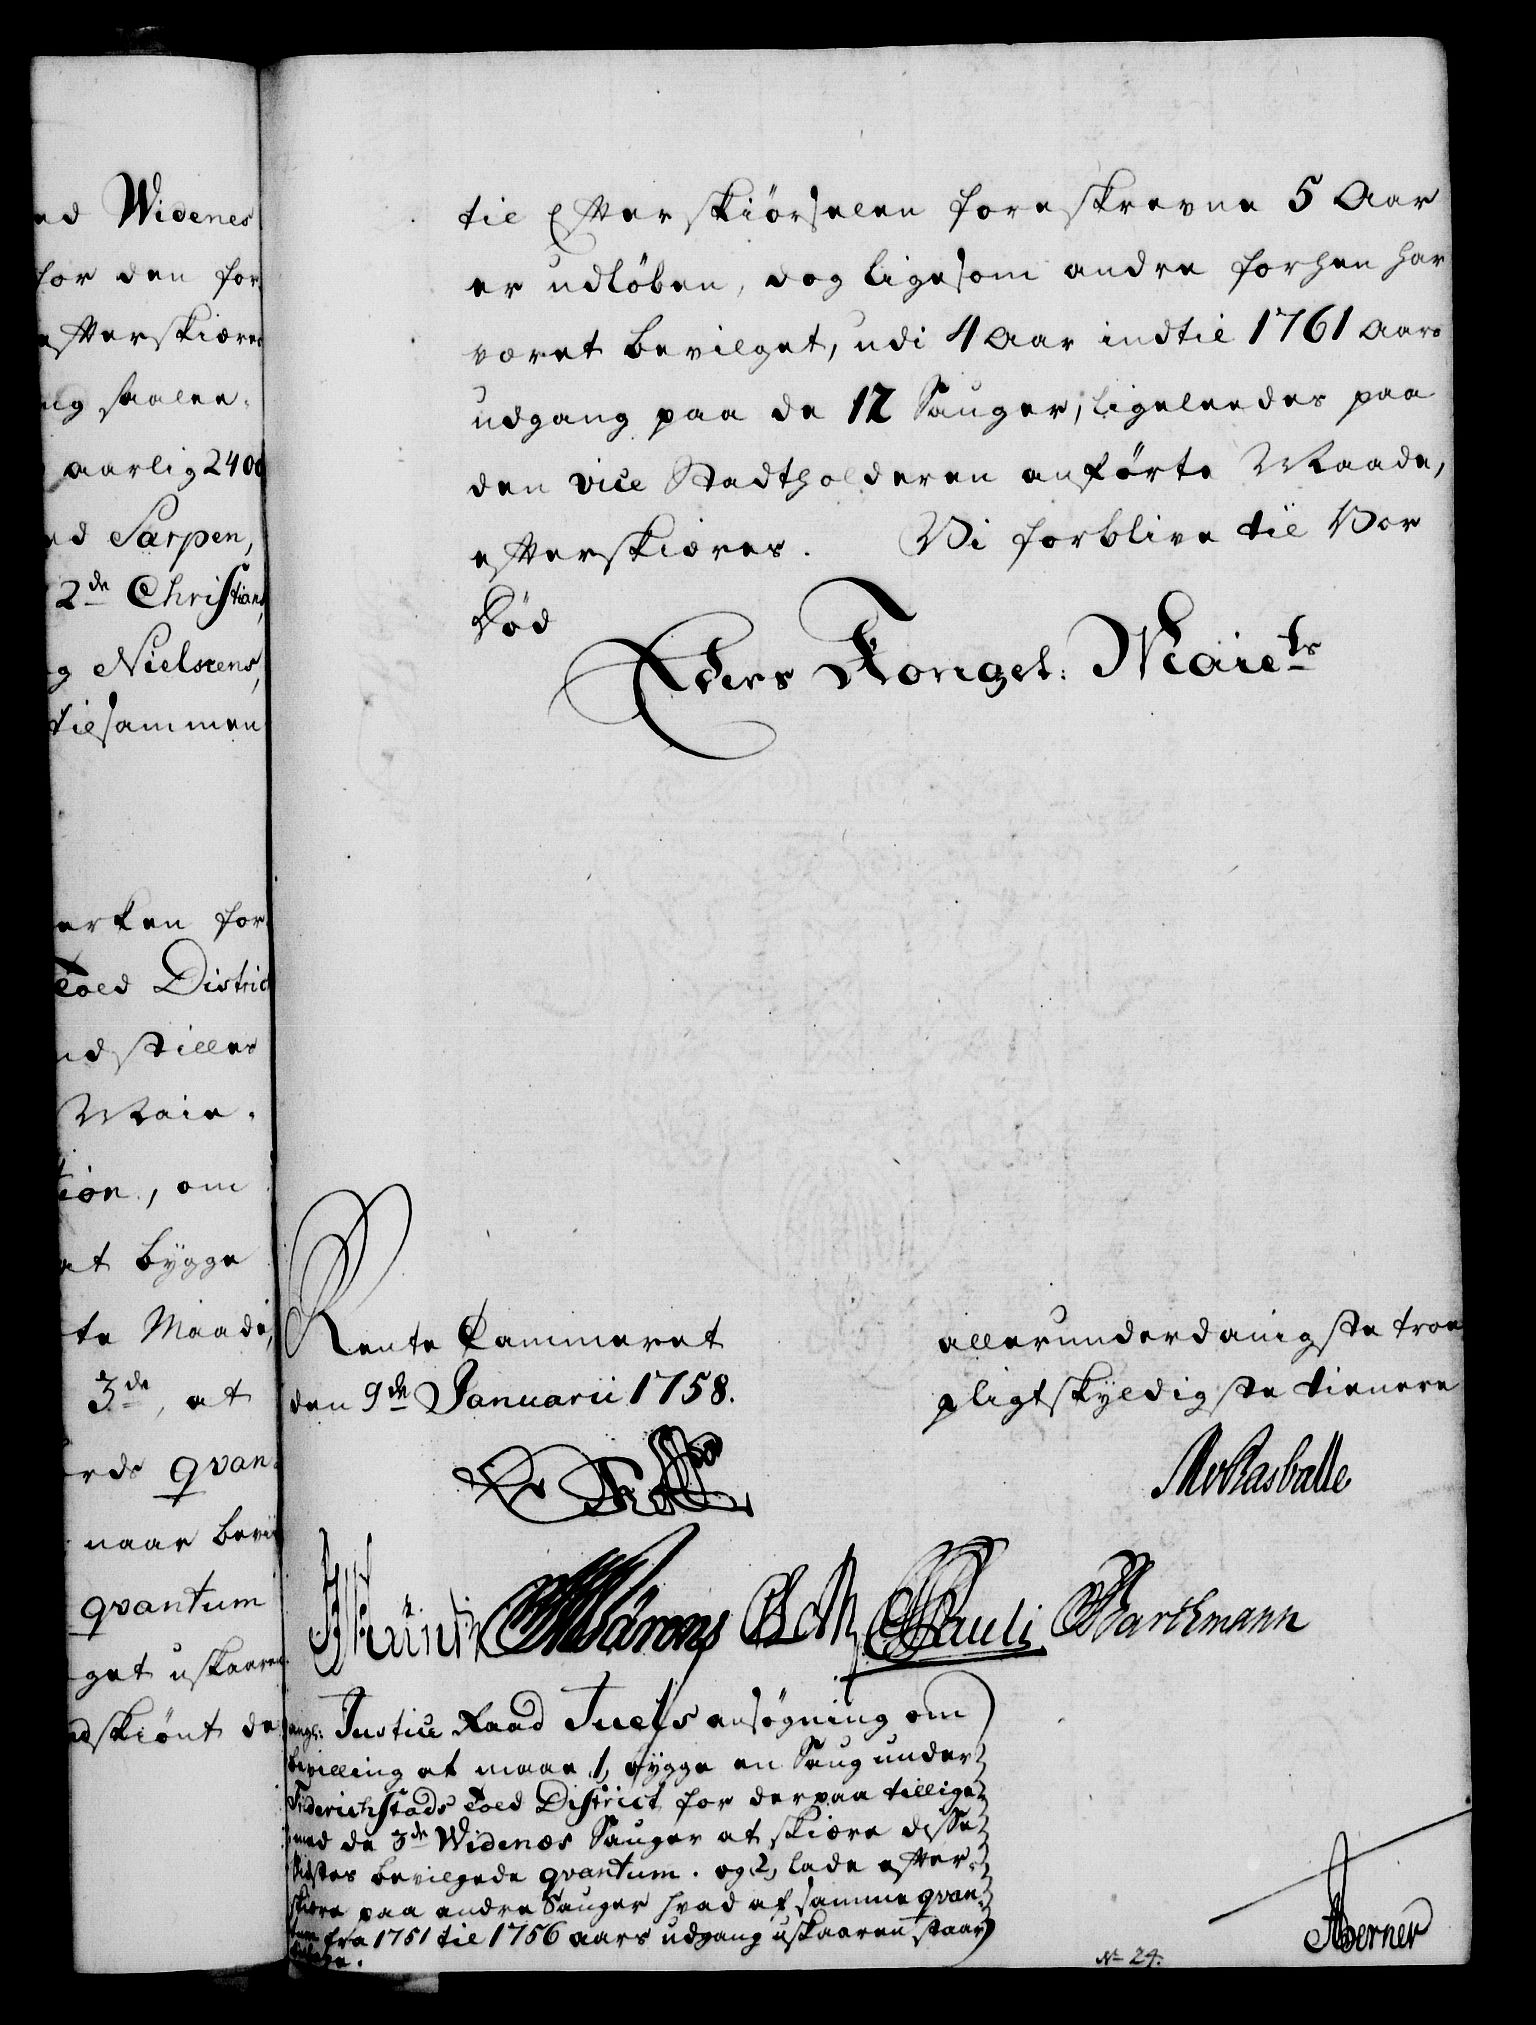 ed Widenes
for den for
efterskiæres
og saalee-
aarlig 2400
ed Sarpen,
2de Christians,
g Nielsens,
tilsammen
erken for
Told District
indstilles
Maie-
tion, om
at bygge
te Maade,
3de, at
rds qvan-
naar bevi
qvantum
get uskaaren
dskiönt de
til Efterskiörselen foreskrevne 5 Aar
er udlöben, dog ligesom andre forhen har
været bevilget, udi 4 Aar indtil 1761 Aars
udgang paa de 12 Sauger, ligeleedes paa
den vice Stadtholderen anförte Maade,
efterskiæres. Vi forblive til Vor
Död
Eders Kongel: Maiets
Rente Cammeret
den 9de Januarii 1758.
allerunderdanigste troe
pligtskyldigste tienere
Rasballe
Pauli Barthmann
angl: Justice Raad Juels ansögning om
bevilling at maae 1, bygge en Saug under
Friderichstads Told District for derpaa tillige
med de 3de Widenæs Sauger at skiære disse
sidstes bevilgede qvantum. og 2, lade efter-
skiære paa andre Sauger hvad af samme qvan-
tum fra 1751 til 1756 aars udgang uskaaren staar
tilbage.
No 24.
Berner